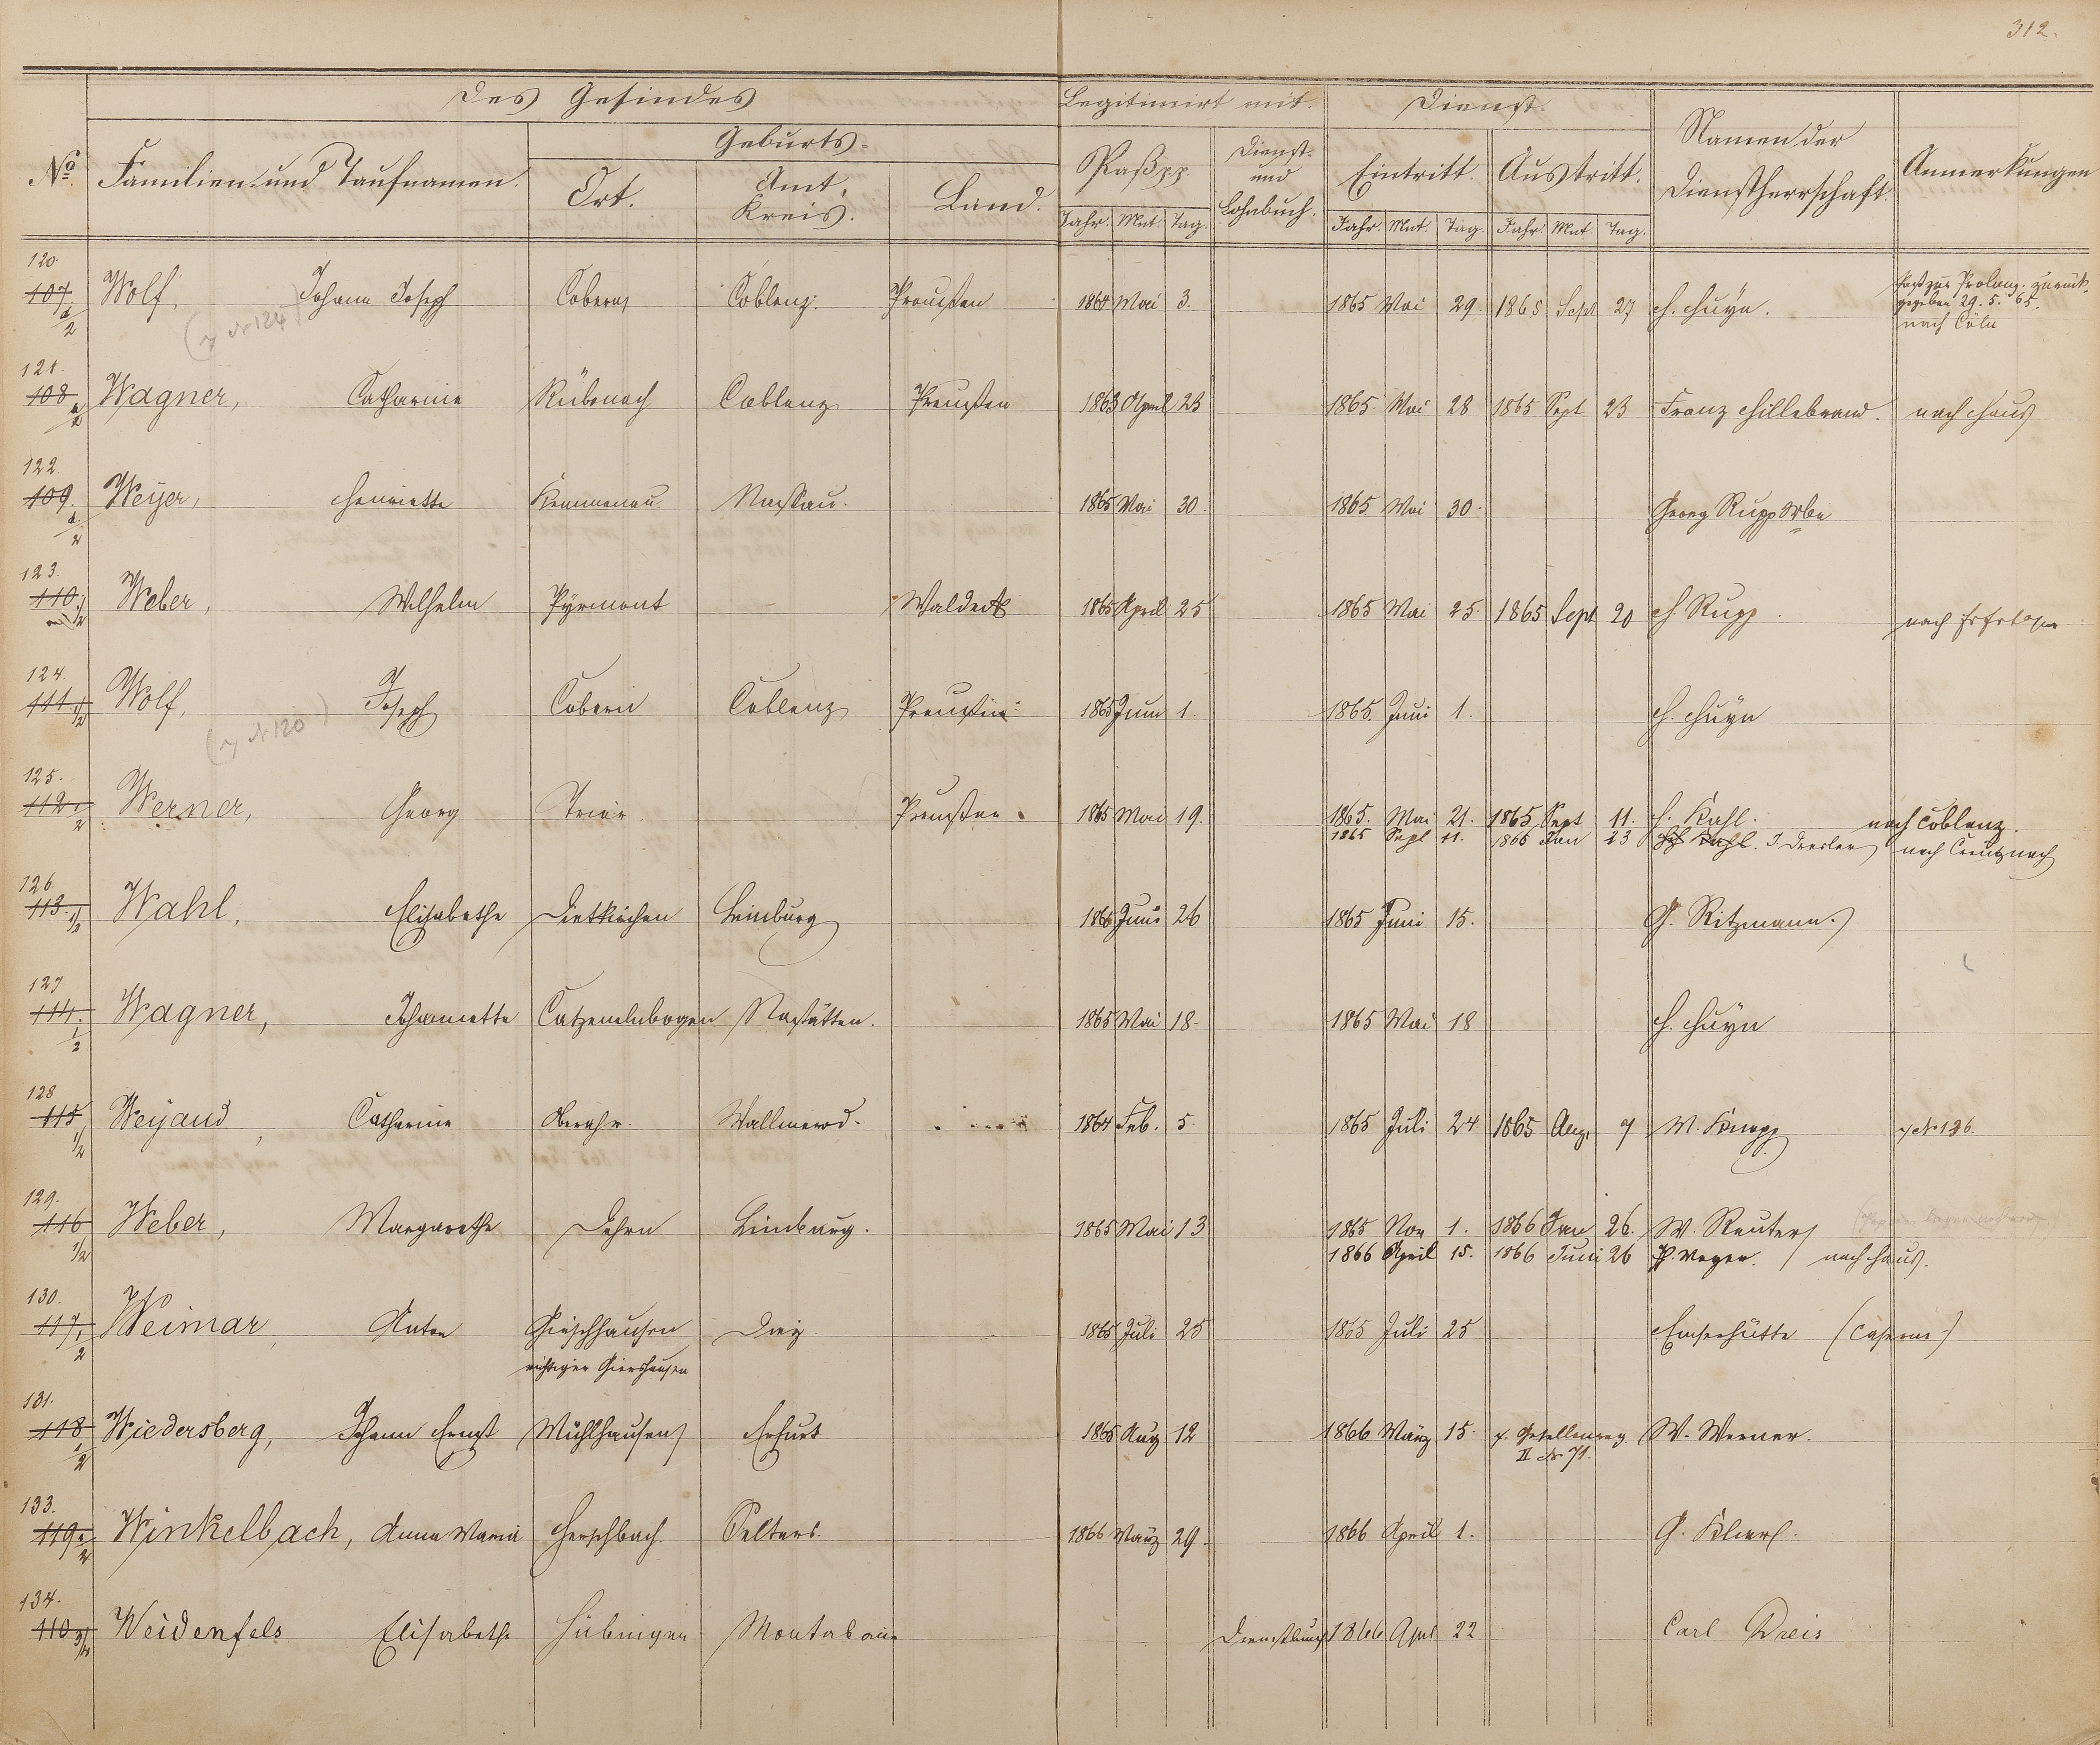 312.
Des Gesindes
Legitimirt mit.
Dienst.
No
Familien- und Taufnamen.
Geburts-
Ort.
Amt, Kreis.
Land.
Paß pp.
Dienst- und Lohnbuch.
Eintritt.
Austritt.
Namen der Dienstherrschaft.
Anmerkungen
Jahr. Mnt. Tag. Jahr. Mnt. Tag. Jahr. Mnt. Tag.
120.
107 1/2 Wolf, Johann Joseph Cobern Coblenz. Preußen 1864 Mai 3. 1865 Mai 29. 1865 Sept 27 H. Huyn. Paß zur Prolong. zurück-
gegeben 29. 5. 65.
nach Cöln
( No 124)
121.
108 1/2 Wagner, Catharine Rübenach Coblenz Preußen 1863 April 23 1865. Mai 28 1865 Sept 23 Franz Hillebrand. nach Haus
122.
109. 1/2 Weyer, Henriette Kemmenau Nassau. 1865 Mai 30. 1865. Mai 30. Georg Rupp Wbe
123.
110. 1/2 Weber, Wilhelm Pyrmont Waldeck 1865 April 25 1865 Mai 25. 1865 Sept 20 H. Rupp. nach
124.
111 1/2 Wolf, Joseph Cobern Coblenz Preußen 1865 Juni 1. 1865. Juni 1. H. Huyn
( No 120)
125.
112 1/2 Werner, Georg Trier Preußen. 1865 Mai 19. 1865. Mai 21. 1865 Sept 11. H. Kahl. nach Coblenz.
1865 Sept 11. 1866 Jan 23 Kahl. J. nach Creuznach
126
113. 1/2 Wahl, Elisabethe Dietkirchen Limburg 1865 Juni 26 1865 Juni 15. G. Ritzmann.
127
114. 1/2 Wagner, Johannette Catzenelnbogen Nastätten. 1865 Mai 18. 1865 Mai 18 H. Huyn
128
115 1/2 Weyand, Catharine Oberahr. Wallmerod. 1864 Feb. 5. 1865 Juli 24 1865 Aug. 7 W. Knopp No 136.
129.
116 1/2 Weber, Margarethe Dehrn Limburg. 1865 Mai 13 1865 Nov 1. 1866 Jan 26. W. Reuter
1866 April 15. 1866 Juni 26 P. Meyer. nach Haus.
130.
117 1/2 Weimar, Anton Hirschhausen Diez 1865 Juli 25 1865 Juli 25 Emserhütte (Caserne)
richtiger Giershausen
131.
118 1/2 Wiedersberg, Johann Ernst Mühlhausen Erfurt 1865 Aug 12 1866 März 15. Gesellenreg. W. Werner.
II No 71.
133.
119. 1/2 Winkelbach, Anna Maria Herschbach. Selters. 1866 März 29. 1866 April 1. G.
134.
110 Weidenfels Elisabethe Hübingen Montabaur Dienstbuch 1866 April 22 Carl Dreis